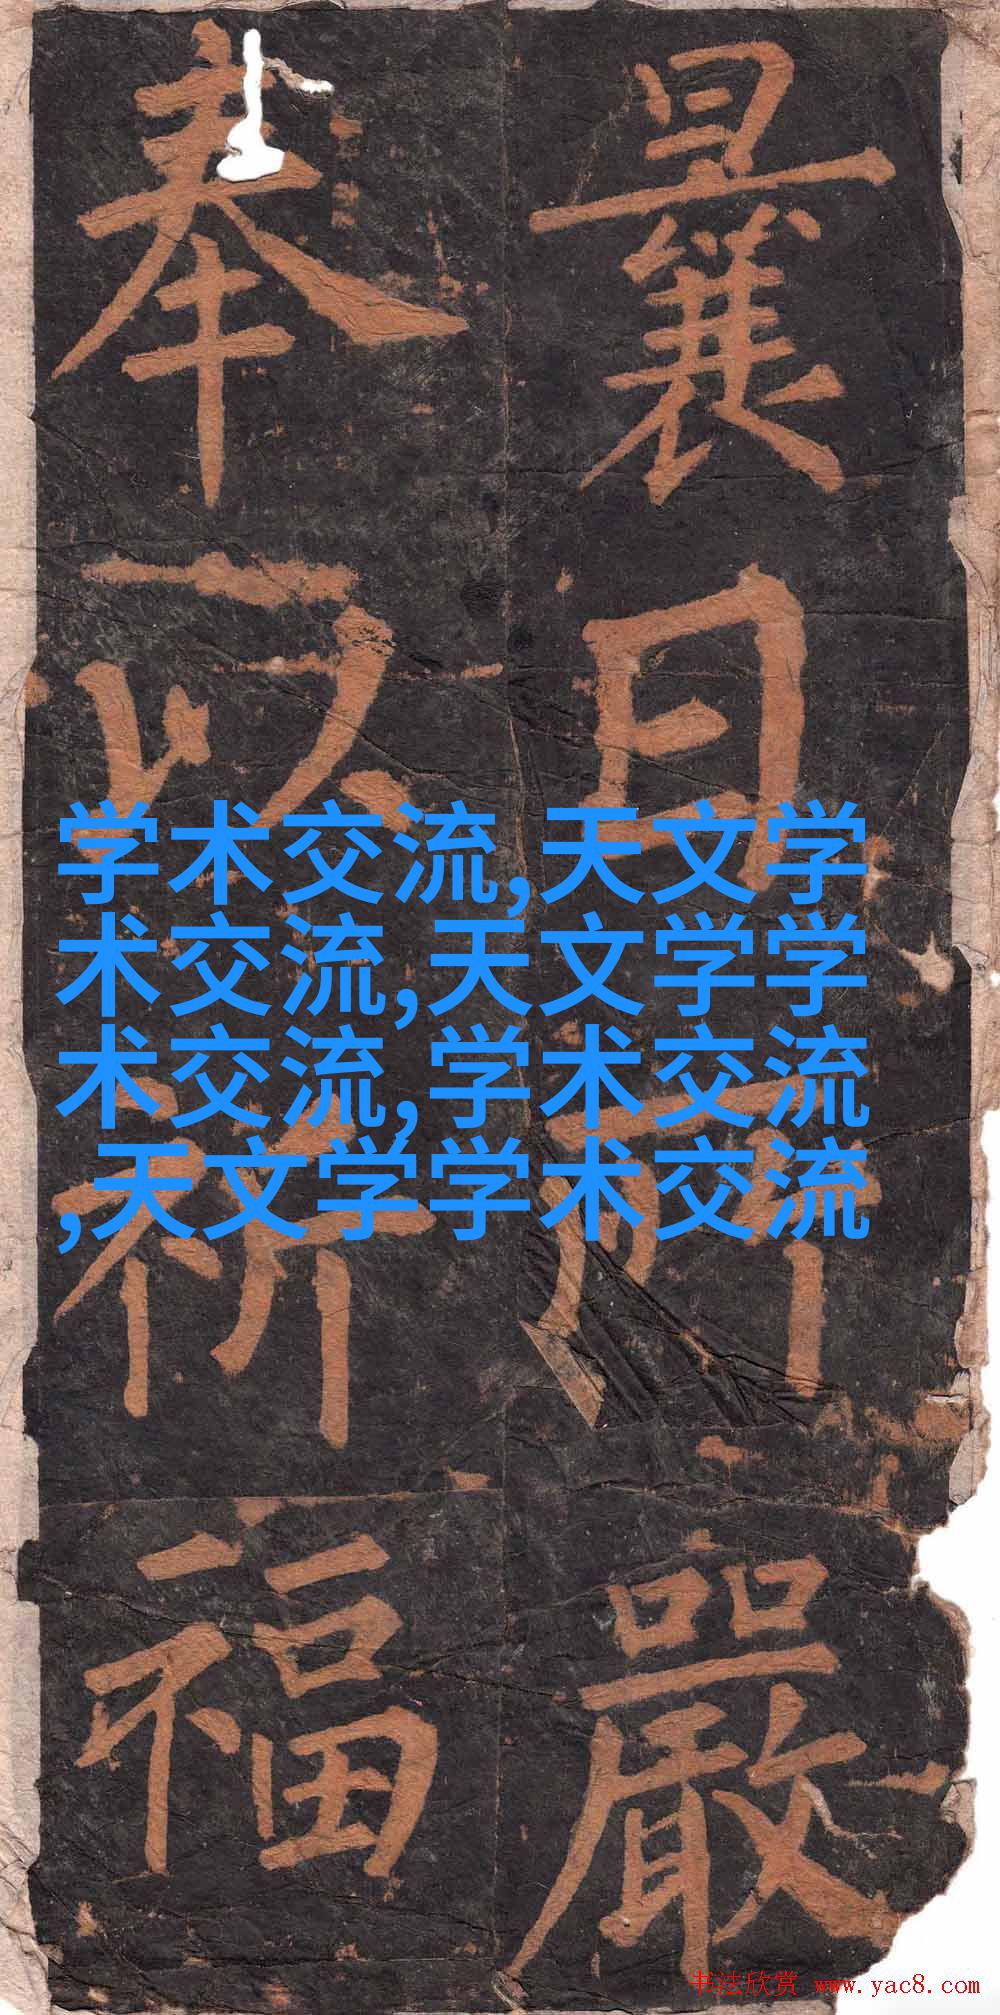 曩日所嚴
奉以祈福
学术交流,天文学
术交流,天文学学
术交流,学术交流
,天文学学术交流
书法欣赏 www.yac8.com